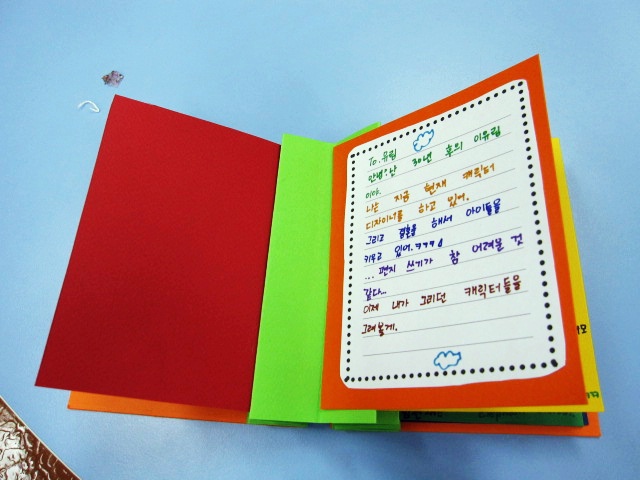 To. 유림
안녕? 난 30년 후의 이유림
이야.
나는 지금 현재 캐릭터
디자이너를 하고 있어.
그리고 결혼을 해서 아이들을
키우고 있어.ㅋㅋㅋ
... 편지 쓰기가 참 어려울 것
같다...
이제 내가 그리던 캐릭터들을
그려볼게.